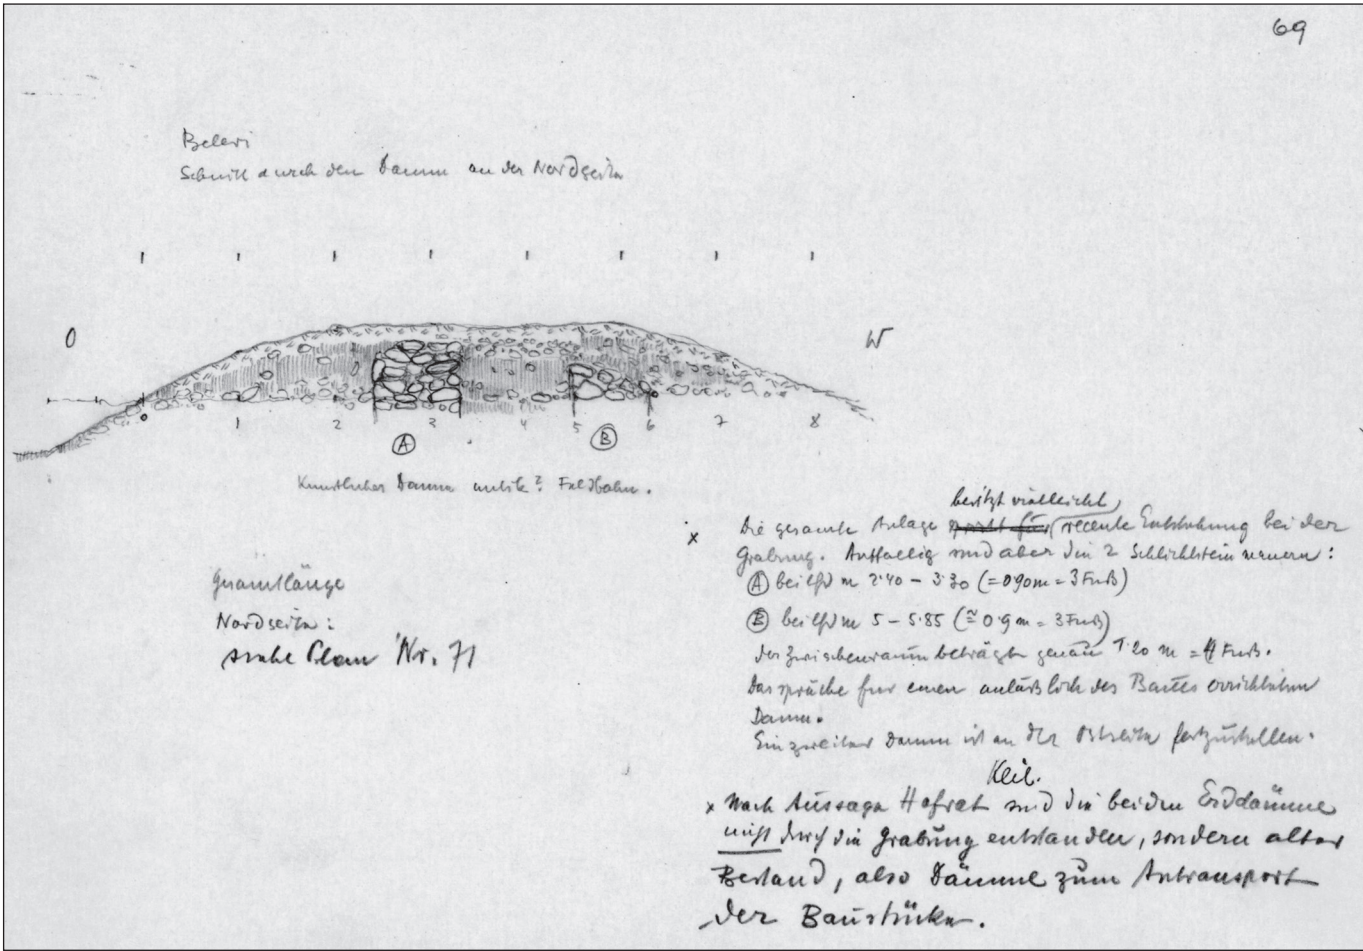 69
Belevi
Schnitt durch den Damm an der Nordseite
O
W
0 1 2 3 4 5 6 7 8
A B
Kunstlicher Damm antik? Feldbahn.
besitzt vielleicht
x Die gesamte Anlage recente Entstehung bei der
Grabung. Auffaellig sind aber die 2 Schlichtsteinmauern:
A bei lfd m 2·40 – 3·30 (=0·90m = 3 Fuß)
B bei lfd m 5 – 5·85 (≅ 0·9 m = 3 Fuß)
der Zwischenraum beträgt genau 1·20 m = 4 Fuß.
Das spräche fur einen anläßlich des Baues errichteten
Damm.
Ein zweiter Damm ist an der Ostseite festzustellen.
Gesamtlänge
Nordseite:
siehe Plan Nr. 71
Keil.
x Nach Aussage Hofrat sind die beiden Erddämme
nicht durch die Grabung entstanden, sondern alter
Bestand, also Dämme zum Antransport
der Baustücke.